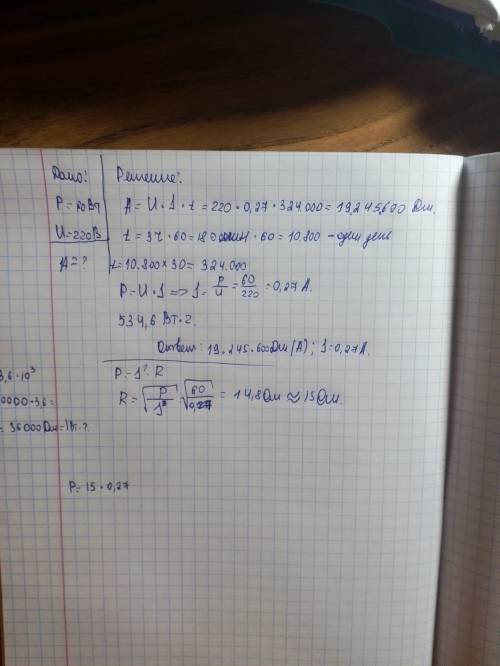 Дано: Решение:
P = 60Вт A = U · I · t = 220 · 0,27 · 324.000 = 19.245.600 Дж.
U = 220В t = 3ч · 60 = 180 мин · 60 = 10.800 - один день
A = ? t = 10.800 × 30 = 324.000
P = U · I => I = P/U = 60/220 = 0,27 А.
534,6 Вт·ч.
Ответ: 19.245.600 Дж (A); I = 0,27 А.
P = I². R
R = √P/I² √60/0,27 = 14,8 Ом ≈ 15 Ом.
3,6 · 10³
0000 · 3,6 =
= 36000 Дж = 1Вт·ч
P = 15 · 0,27